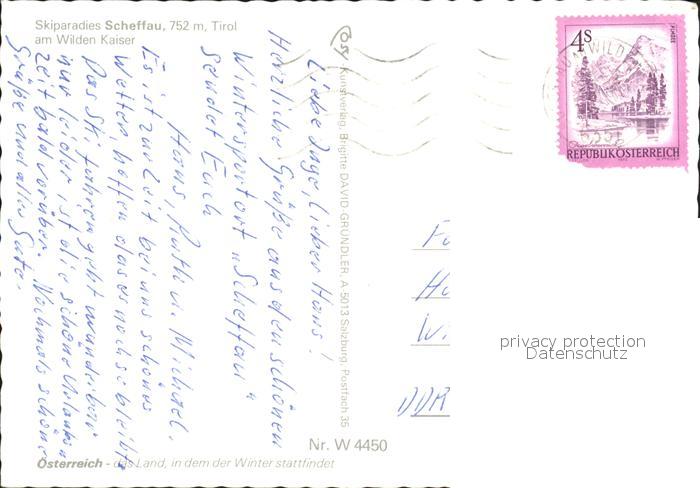 Skiparadies Scheffau, 752 m, Tirol
am Wilden Kaiser
Liebe Inge, lieber Hans!
Herzliche Grüße aus den schönen
Wintersportort "Scheffau"
sendet Euch
Hans, Ruth u. Michael.
Es ist zur Zeit bei uns schönes
Wetter, hoffen das es noch so bleibt.
Das Ski fahren geht wunderbar
nur leider ist die schöne Urlaubs
zeit bald vorüber. Nochmals schöne
Grüße und alles Gute.
Kunstverlag Brigitte DAVID-GRÜNDLER, A 5013 Salzburg, Postfach 35
4S
REPUBLIK ÖSTERREICH
Fa
Ha
DDR
privacy protection
Datenschutz
Nr. W 4450
Österreich - das Land, in dem der Winter stattfindet